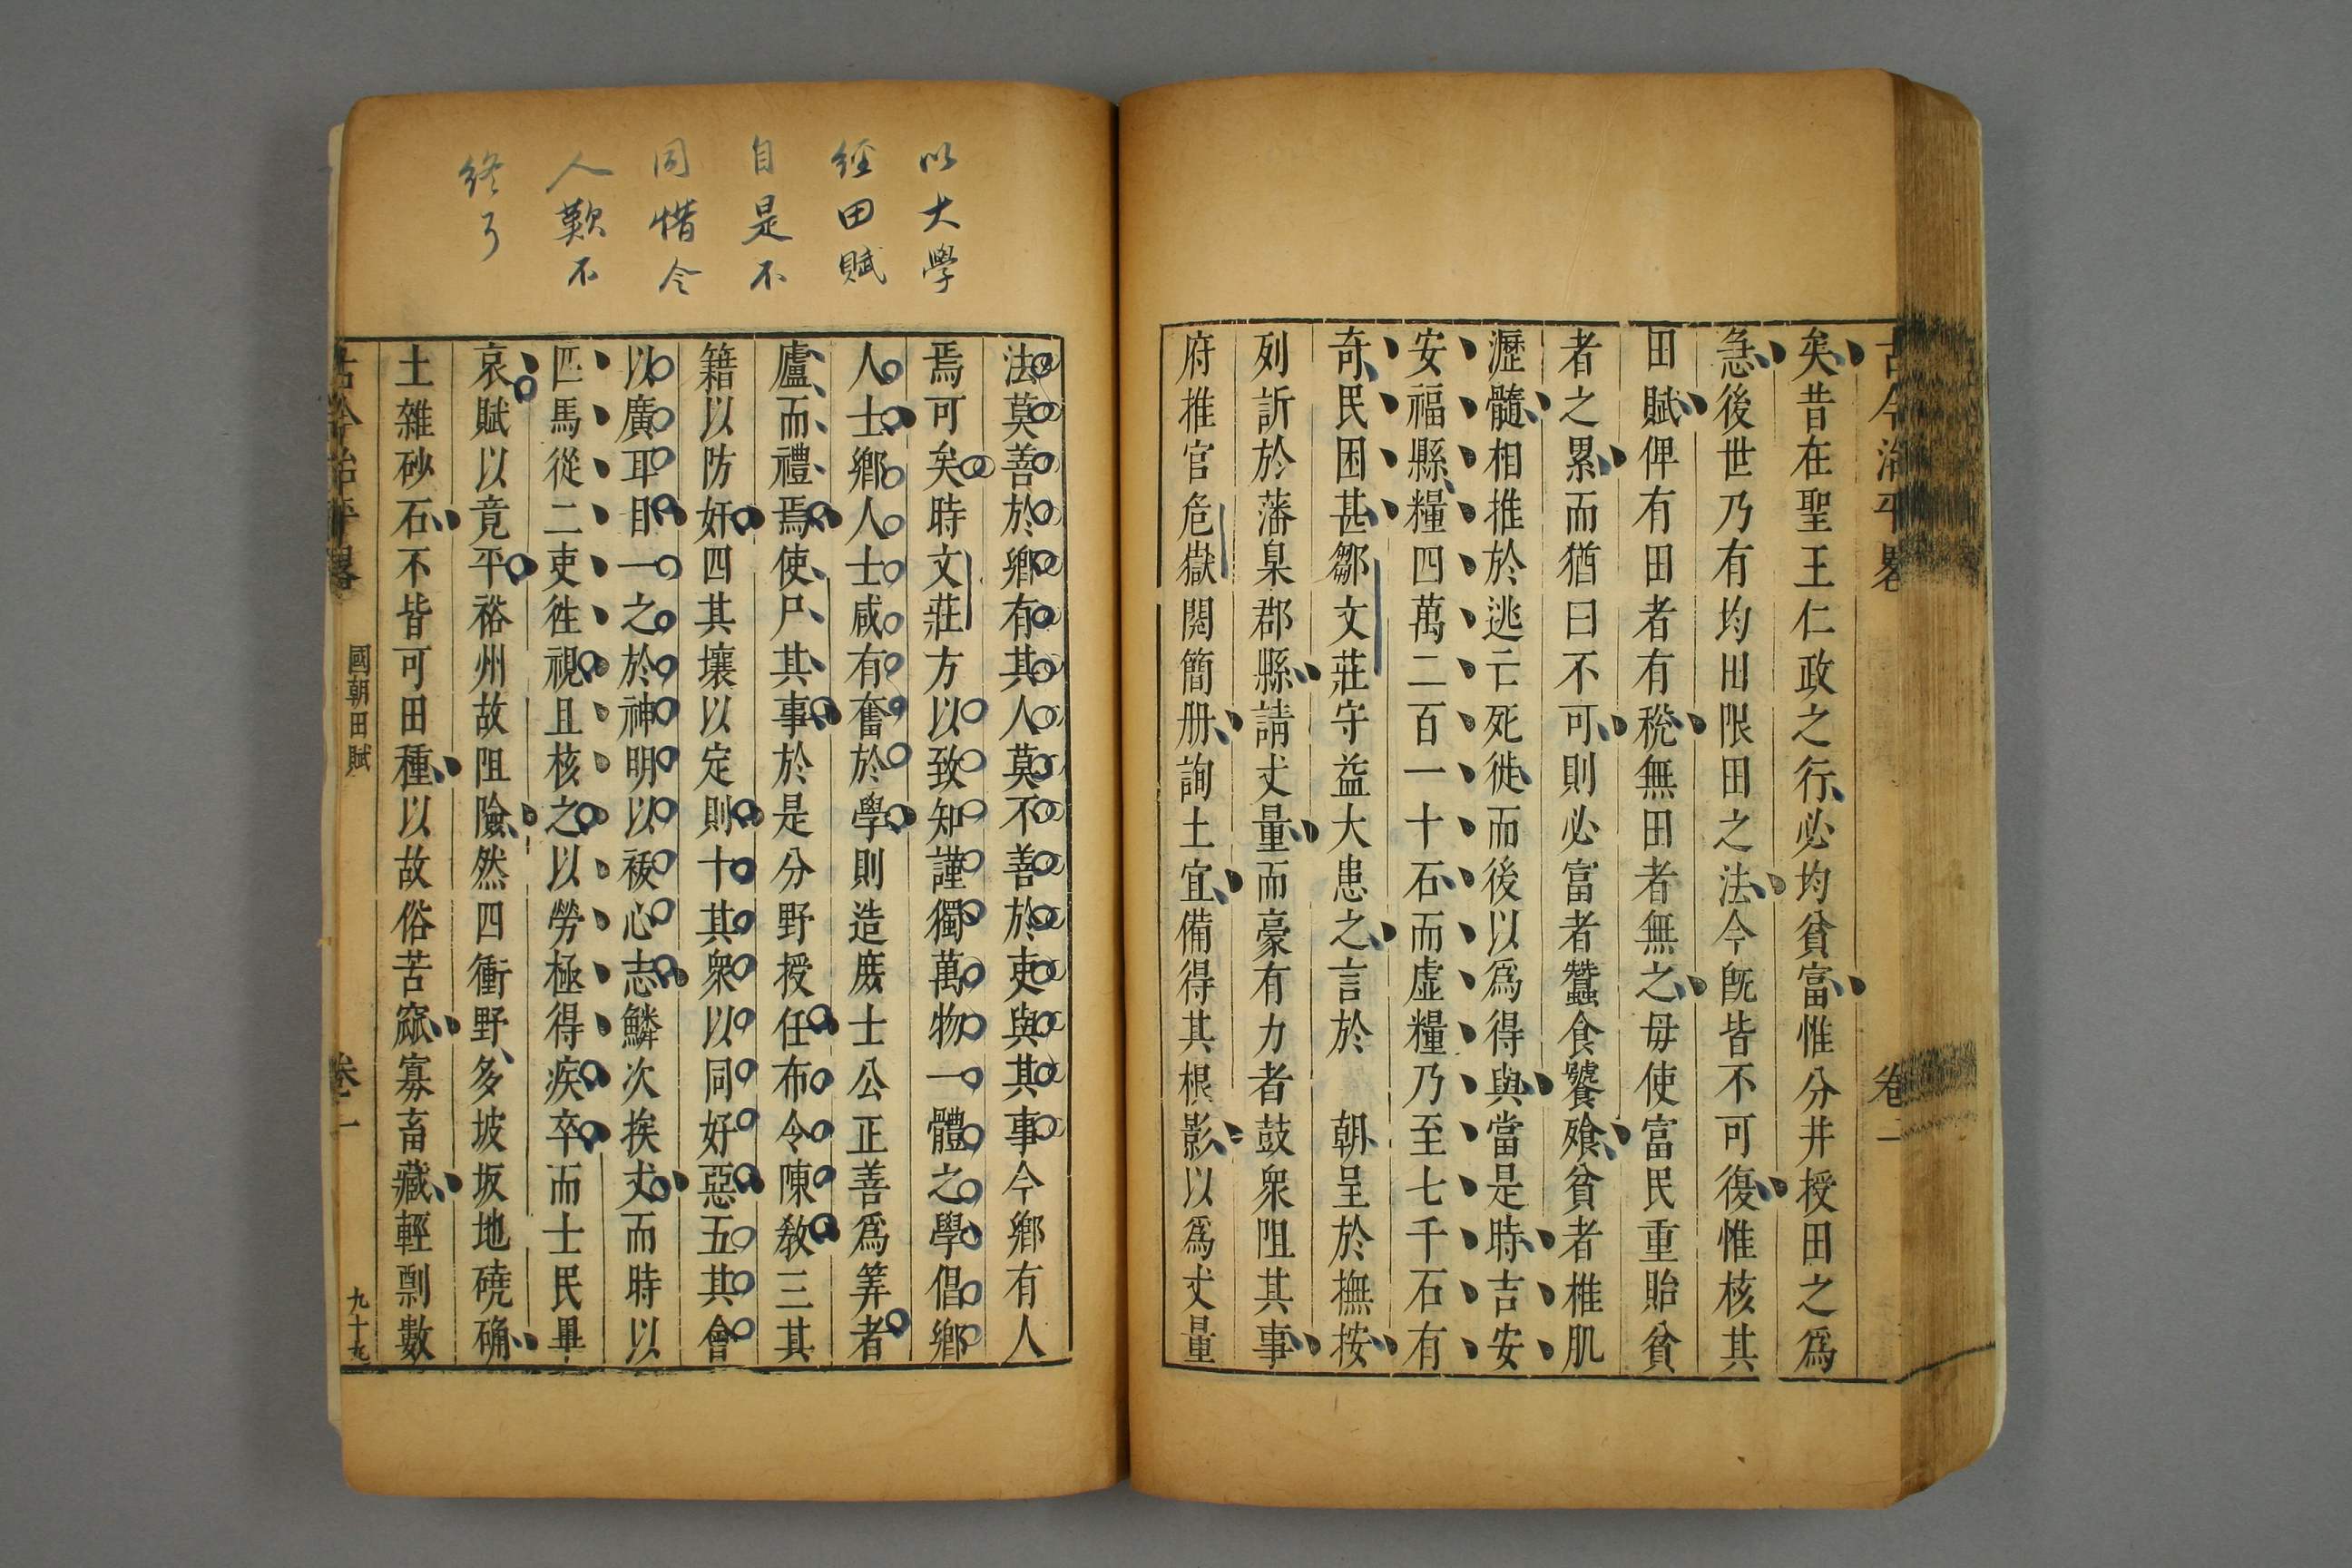 古今治平畧 卷一
矣昔在聖王仁政之行必均貧富惟分井授田之爲
急後世乃有均田限田之法今旣皆不可復惟核其
田賦俾有田者有稅無田者無之毋使富民重貽貧
者之累而猶曰不可則必富者蠶食饕飱貧者椎肌
瀝髓相推於逃亡死徙而後以爲得與當是時吉安
安福縣糧四萬二百一十石而虛糧乃至七千石有
奇民困甚鄒文莊守益大患之言於 朝呈於撫按
列訢於藩臬郡縣請丈量而豪有力者鼓衆阻其事
府推官危嶽閱簡册詢土宜備得其根影以爲丈量
以大學
經田賦
自是不
同惜今
人歎不
終了
法莫善於鄉有其人莫不善於吏與其事今鄉有人
焉可矣時文莊方以致知謹獨萬物一體之學倡鄉
人士鄉人士咸有奮於學則造廒士公正善爲筭者
廬而禮焉使尸其事於是分野授任布令陳敎三其
籍以防奸四其壤以定則十其衆以同好惡五其會
以廣耳目一之於神明以祓心志鱗次挨丈而時以
匹馬從二吏徃視且核之以勞極得疾卒而士民畢
哀賦以竟平裕州故阻險然四衝野多坡坂地磽确
土雜砂石不皆可田種以故俗苦窳寡畜藏輕剽數
古今治平畧 國朝田賦 卷一 九十九